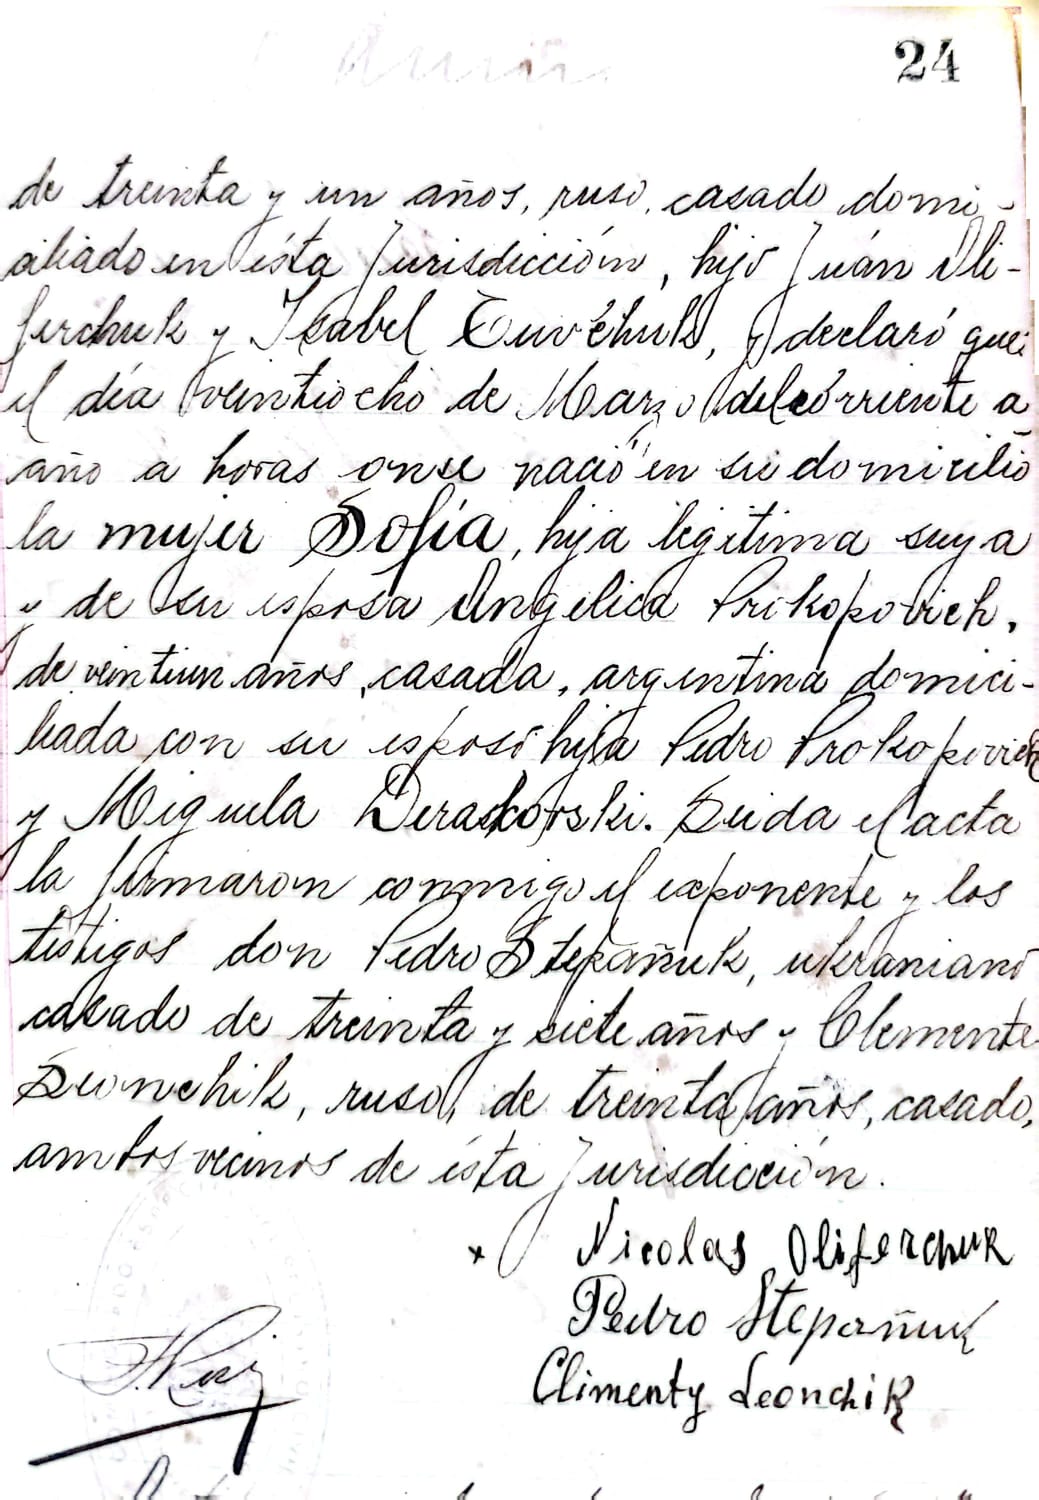 24
de treinta y un años, ruso, casado domi-
ciliado en ésta Jurisdicción, hijo Juán Oli-
ferchuk y Isabel Tuvéhuk, y declaró que:
el día veintiocho de Marzo del córriente a
año a horas onse nació en su domicilio
la mujer Sofía, hija legitima suya
y de su esposa Angélica Prokopovich,
de veintiun años, casada, argentina domici-
liada con su esposo hija Pedro Prokopovich
y Miguela Deraskovski. Leida el acta
la firmaron conmigo el exponente y los
testigos don Pedro Stepañuk, ukraniano
casado de treinta y siete años y Clemente
Leonchik, ruso, de treinta años, casado,
ambos vecinos de ésta Jurisdicción.
x Nicolas Oliferchuk
Pedro Stepañuk
Climenty Leonchik